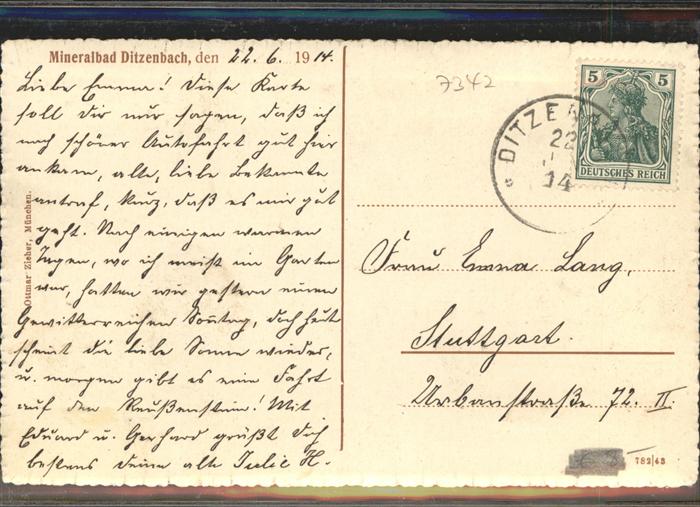 Mineralbad Ditzenbach, den 22. 6. 1914.
Liebe Emma! Diese Karte
soll Dir nur sagen, daß ich
nach schöner Autofahrt gut hier
ankam, alte, liebe Bekannte
antraf, kurz, daß es mir gut
geht. Nach einigen warmen
Tagen, wo ich meist im Garten
war, hatten wir gestern einen
Gewitterreichen Sonntag, doch heut
scheint die liebe Sonne wieder,
u. morgen gibt es eine Fahrt
auf den Reußenstein! Mit
Eduard u. Gerhard grüßt Dich
bestens deine alte Julie H.
Ottmar Zieher, München.
7342
DITZEN
22
14
5 5
DEUTSCHES REICH
Frau Emma Lang,
Stuttgart.
Urbanstraße 72. II.
782/43